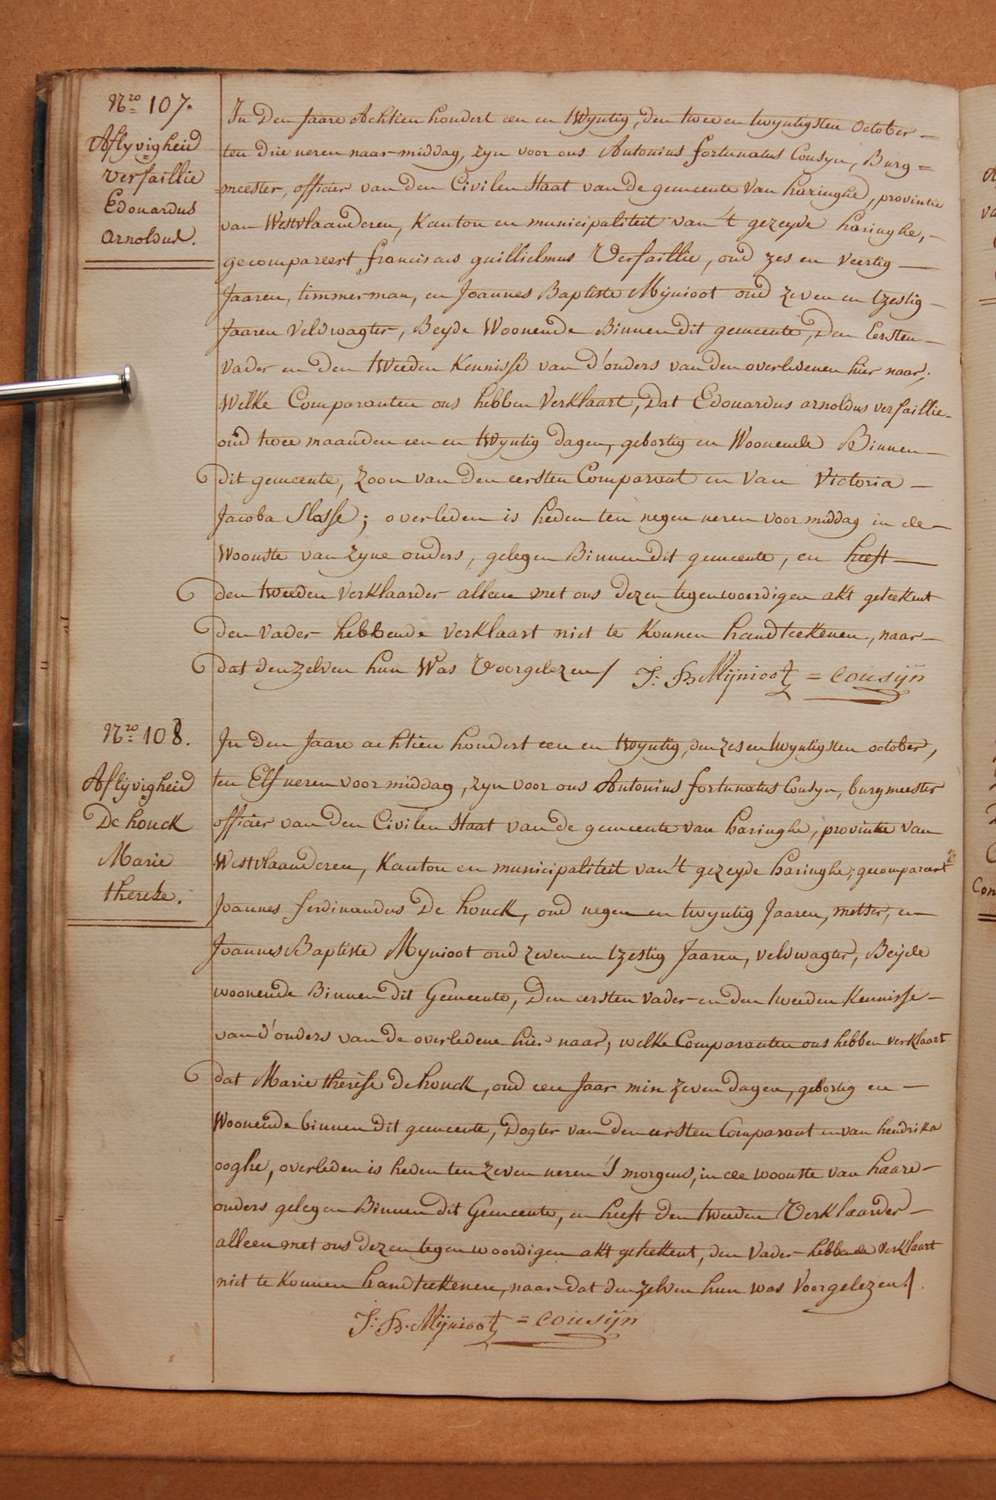 Nro 107.
Aflyvigheid
Verfaillie
Edouardus
Arnoldus.
In den Jaare Achtien hondert een en twyntig, den tweeen twyntigsten october
ten drie ueren naar middag, zyn voor ons Antonius fortunatus Cousyn, Burg=
meester, officier van den Civilen Staat van de gemeente van haringhe, provintie
van Westvlaanderen, Kanton en municipaliteit van 't gezeyde haringhe,
gecompareert franciscus guillielmus Verfaillie, oud zes en veertig
Jaaren, timmerman, en Joannes Baptiste Mynioot oud zeven en tzestig
Jaaren veldwagter, Beyde Woonende Binnen dit gemeente, Den Eersten
vader en den tweeden Kennisse van d'ouders van den overledenen hier naar;
Welke Comparanten ons hebben Verklaart, Dat Edouardus arnoldus verfaillie
oud twee maanden een en twyntig dagen, gebortig en Woonende Binnen
dit gemeente, zoon van den eersten Comparant en van Victoria
Jacoba Slosse; overleden is heden ten negen ueren voor middag in de
Woonste van zyne ouders, gelegen Binnen dit gemeente, en heeft
den tweeden Verklaarder alleen met ons dezen tegenwoordigen akt geteekent
Den vader hebbende verklaart niet te Konnen handteekenen, naar
dat den zelven hun Was Voorgelezen/ J: B Mijnioot = cousijn
Nro 108.
Aflyvigheid
De houck
Marie
therese.
In den Jaare achtien hondert een en twyntig, den zes en twyntigsten october,
ten Elf ueren voor middag, zyn voor ons Antonius fortunatus Cousyn, burgmeester
officier van den Civilen Staat van de gemeente van haringhe, provintie van
Westvlaanderen, Kanton en municipaliteit van 't gezeyde haringhe, gecompareert
Joannes ferdinandus De houck, oud negen en twyntig Jaaren, metser, en
Joannes Baptiste Mynioot oud zeven en tzestig Jaaren, veldwagter, Beijde
woonende Binnen dit Gemeente, Den eersten vader en den tweeden Kennisse
van d'ouders van de overledene hier naar; welke Comparanten ons hebben verklaart
dat Marie therese De houck, oud een Jaar min zeven dagen, gebortig en
Woonende binnen dit gemeente, Dogter van den eersten Comparant en van hendrika
ooghe, overleden is heden ten zeven ueren 's morgens, in de woonste van haare
ouders gelegen Binnen dit Gemeente, en heeft den tweeden Verklaarder
alleen met ons dezen tegenwoordigen akt geteekent, den Vader hebbende verklaart
niet te Konnen handteekenen, naar dat den zelven hun was Voorgelezen/.
J: B. Mijnioot = cousijn